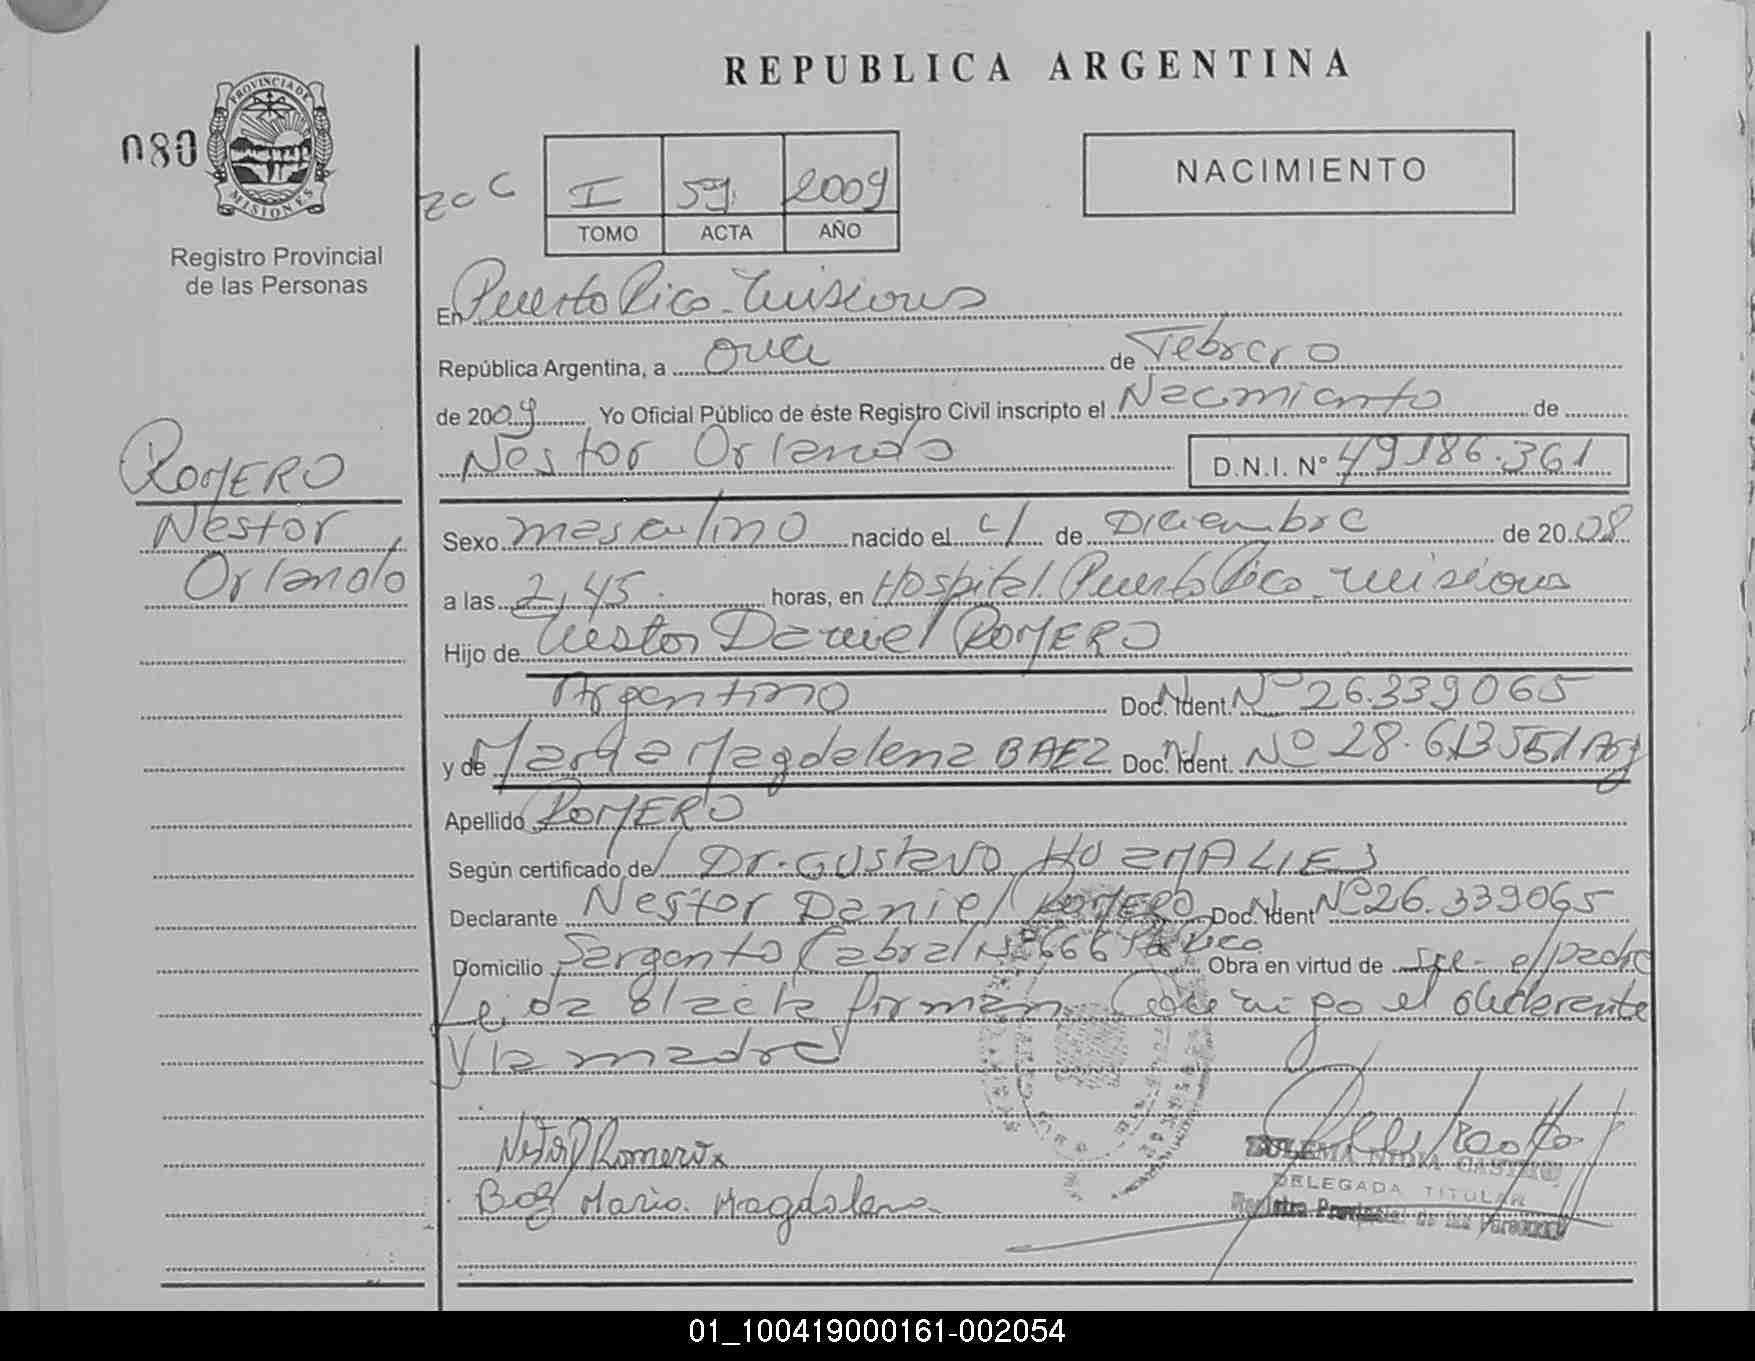 REPUBLICA ARGENTINA
080
PROVINCIA DE
MISIONES
Registro Provincial
de las Personas
I 59 2009
TOMO ACTA AÑO
NACIMIENTO
En Puerto Rico - Misiones
República Argentina, a once de Febrero
de 2009 Yo Oficial Público de éste Registro Civil inscripto el Nacimiento de
Nestor Orlando D.N.I. Nº 49186.361
ROMERO
Nestor
Orlando
Sexo masculino nacido el 4 de Diciembre de 2008
a las 2,45 horas, en Hospital Puerto Rico - Misiones
Hijo de Nestor Daniel ROMERO
Argentino Doc. Ident. Nº 26.339065
y de Maria Magdalena BAEZ Doc. Ident. Nº 28.613551 Arg
Apellido ROMERO
Según certificado de Dr. Gustavo
Declarante Nestor Daniel ROMERO Doc. Ident Nº 26.339065
Domicilio Sargento Cabral Nº 666 Pto Rico Obra en virtud de ser el padre
Leida el acta firman conmigo el declarante
y la madre
Nestor D Romero
Baez Maria Magdalena
ZULEMA NIDIA CASTRO
DELEGADA TITULAR
Registro Provincial de las Personas
01_100419000161-002054